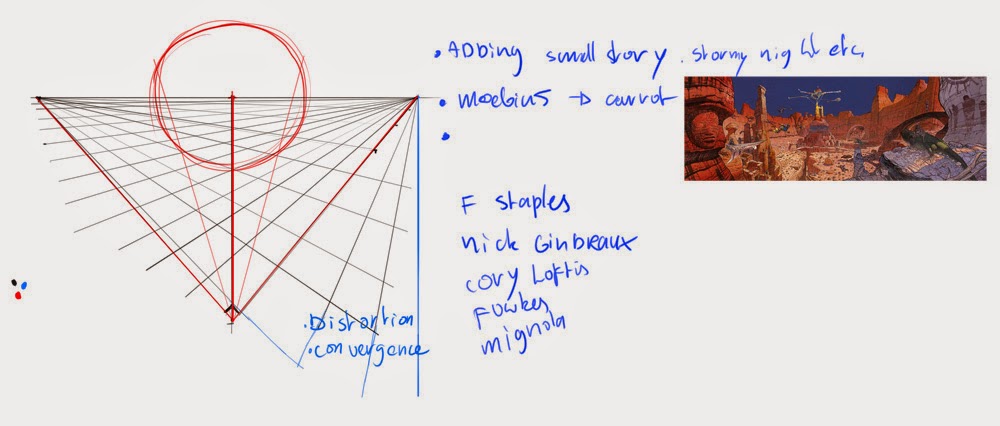 • Adding small story. stormy night etc.
• moebius → carrot
•
F staples
nick Ginbraux
cory Loftis
Fowkes
mignola
• Distortion
• convergence